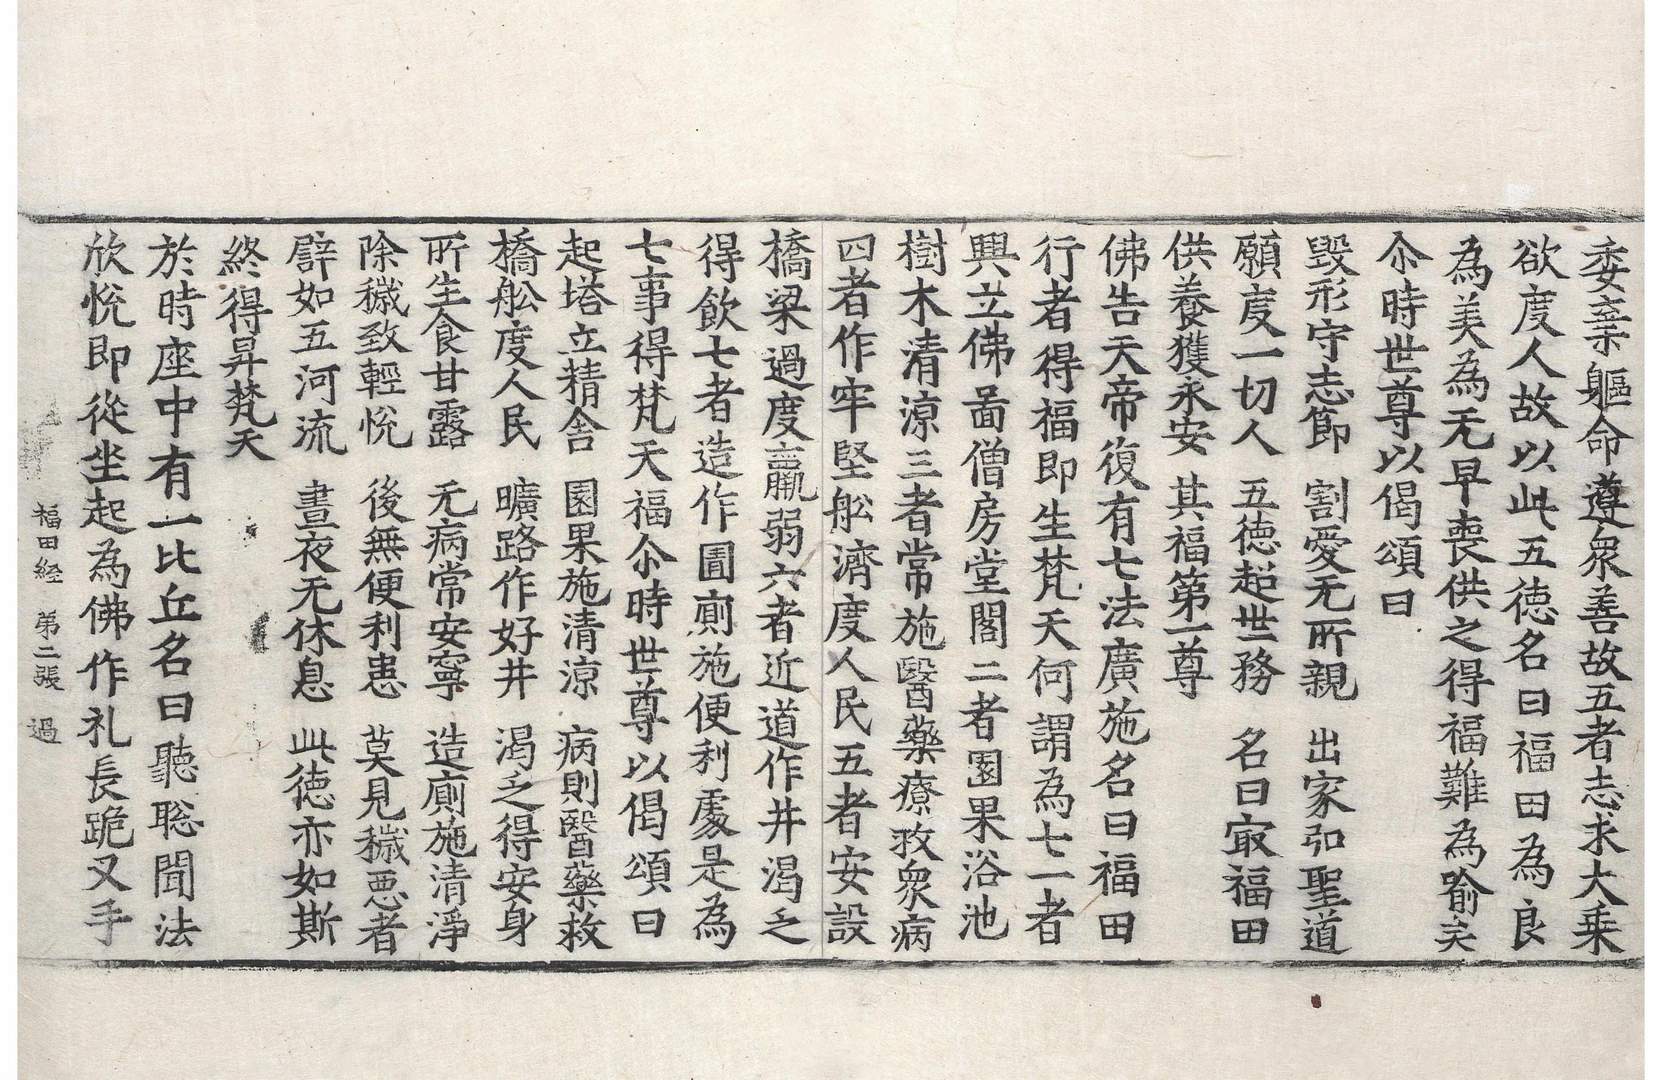 委棄軀命遵衆善故五者志求大乗
欲度人故以此五德名曰福田為良
為美為无早喪供之得福難為喻矣
尒時世尊以偈頌曰
毀形守志節　割愛无所親　出家弘聖道
願度一切人　五德超世務　名曰㝡福田
供養獲永安　其福第一尊
佛告天帝復有七法廣施名曰福田
行者得福即生梵天何謂為七一者
興立佛啚僧房堂閣二者園果浴池
樹木清涼三者常施醫藥療救衆病
四者作牢堅舩濟度人民五者安設
橋梁過度羸弱六者近道作井渴乏
得飲七者造作圊廁施便利處是為
七事得梵天福尒時世尊以偈頌曰
起塔立精舍　園果施清涼　病則醫藥救
橋舩度人民　曠路作好井　渴乏得安身
所生食甘露　无病常安寧　造廁施清淨
除穢致輕悅　後無便利患　莫見穢惡者
譬如五河流　晝夜无休息　此德亦如斯
終得昇梵天
於時座中有一比丘名曰聽聡聞法
欣悅即從坐起為佛作礼長跪叉手
福田經　第二張　過